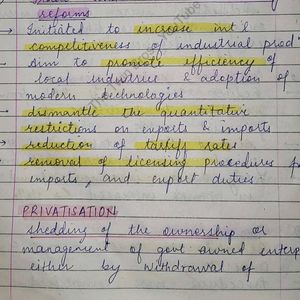 reforms
→ Initiated to increase int'l
competitiveness of industrial prod
→ Aim to promote efficiency of
local industries & adoption of
modern technologies
→ dismantle the quantitative
restrictions on exports & imports
→ reduction of tariff rates
→ removal of licensing procedures f
imports, and export duties
PRIVATISATION
shedding of the ownership or
management of govt owned enterp
either by withdrawal of